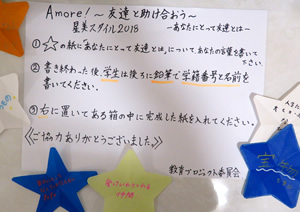 Amore!〜友達と助け合おう〜
星美スタイル2018 ーあなたにとって友達とはー
①☆の紙にあなたにとって友達とは、について、あなたの言葉を書いて
下さい。
②書き終わった後、学生は後ろに鉛筆で学籍番号と名前を
書いてください。
③右に置いてある箱の中に完成した紙を入れてください。
≪ご協力ありがとうございました。≫
教育プロジェクト委員会